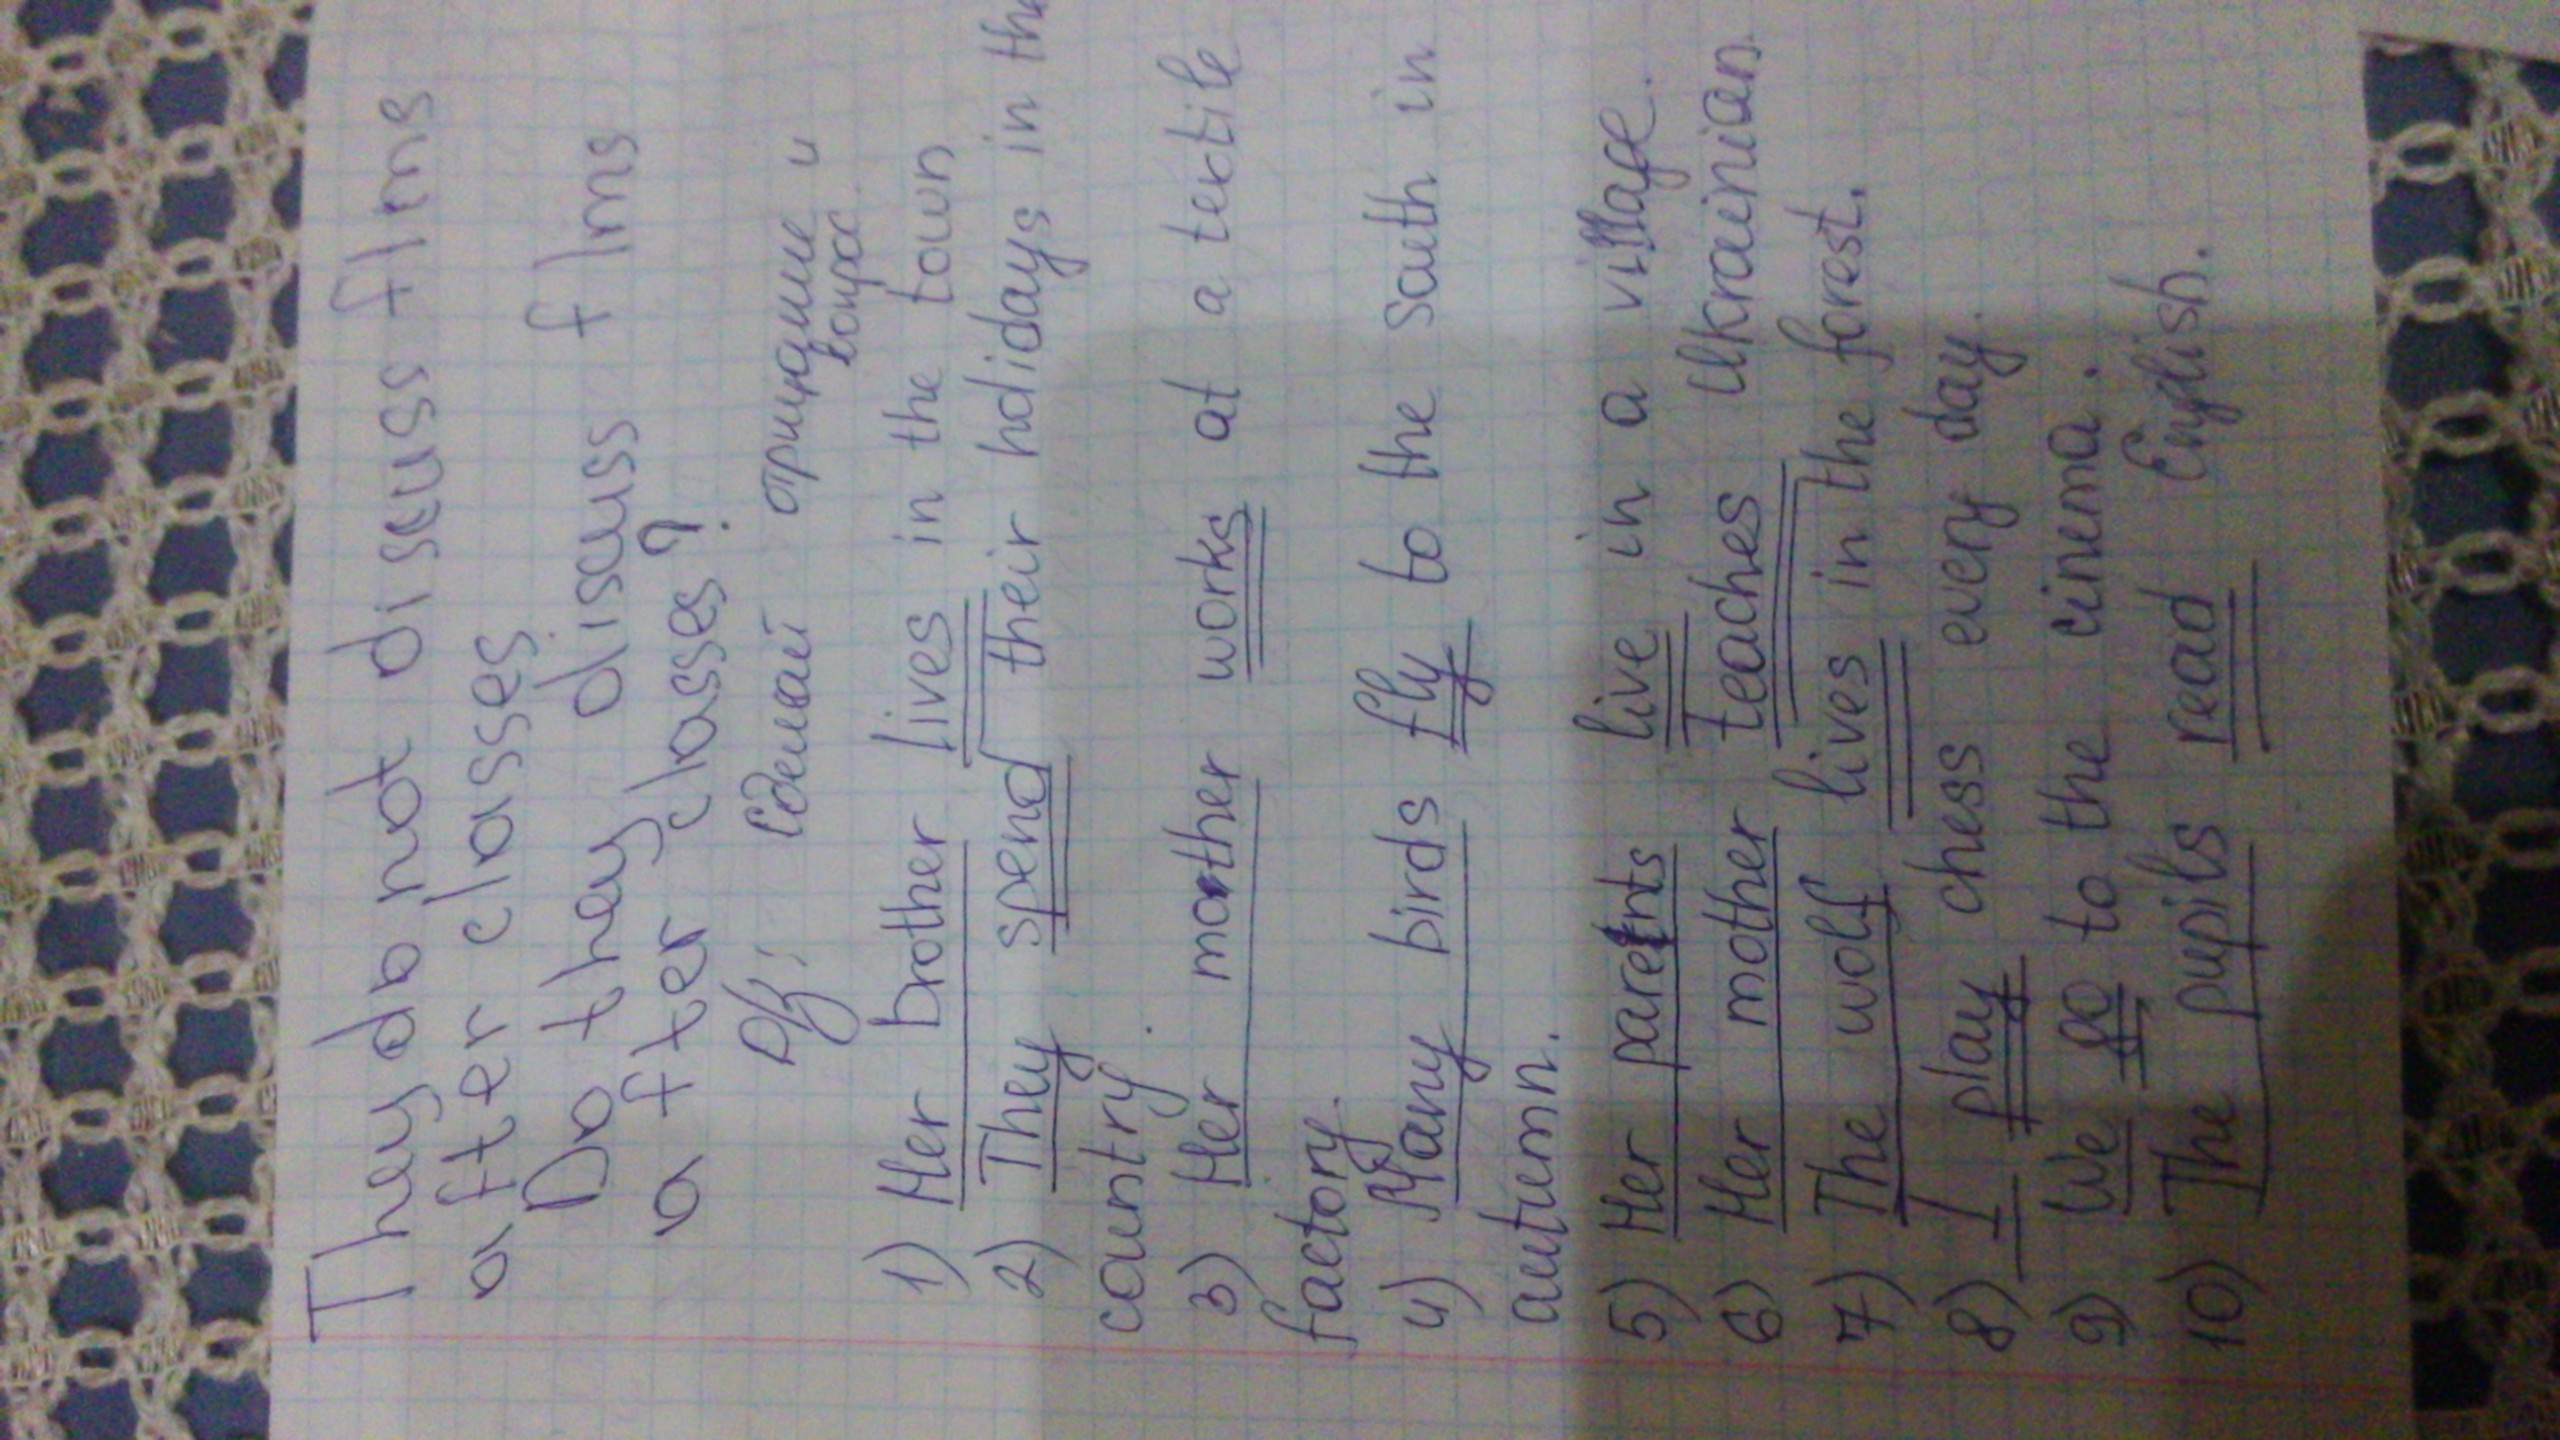 They do not discuss flms
after classes
Do they discuss flms
after classes?
Сделай отрицание и
вопрос.
1) Her brother lives in the town
2) They spend their holidays in the
country.
3) Her mother works at a textile
factory.
4) Many birds fly to the south in
autumn.
5) Her parents live in a village.
6) Her mother teaches Ukrainian.
7) The wolf lives in the forest.
8) I play chess every day.
9) We go to the cinema.
10) The pupils read English.